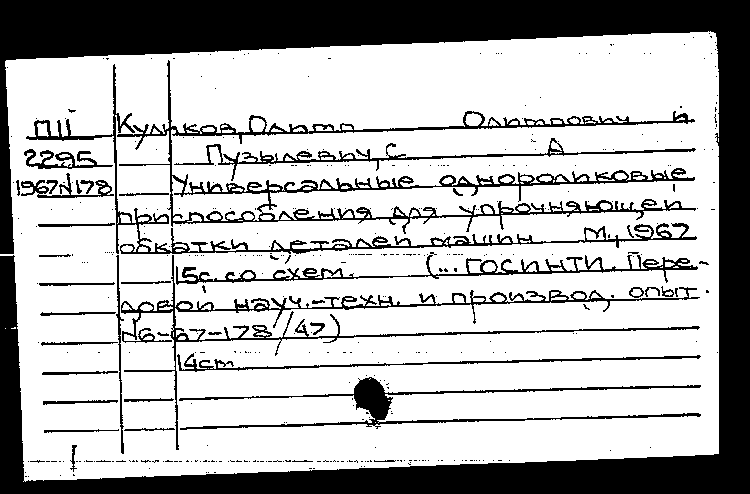 ПII Куликов, Олимп Олимпович и
2295 Пузылевич, С А
1967N178 Универсальные однороликовые
приспособления для упрочняющей
обкатки деталей машин М., 1967
15с. со схем. (... ГОСИНТИ. Пере-
довой науч.-техн. и производ. опыт.
N6-67-178/47)
14cm